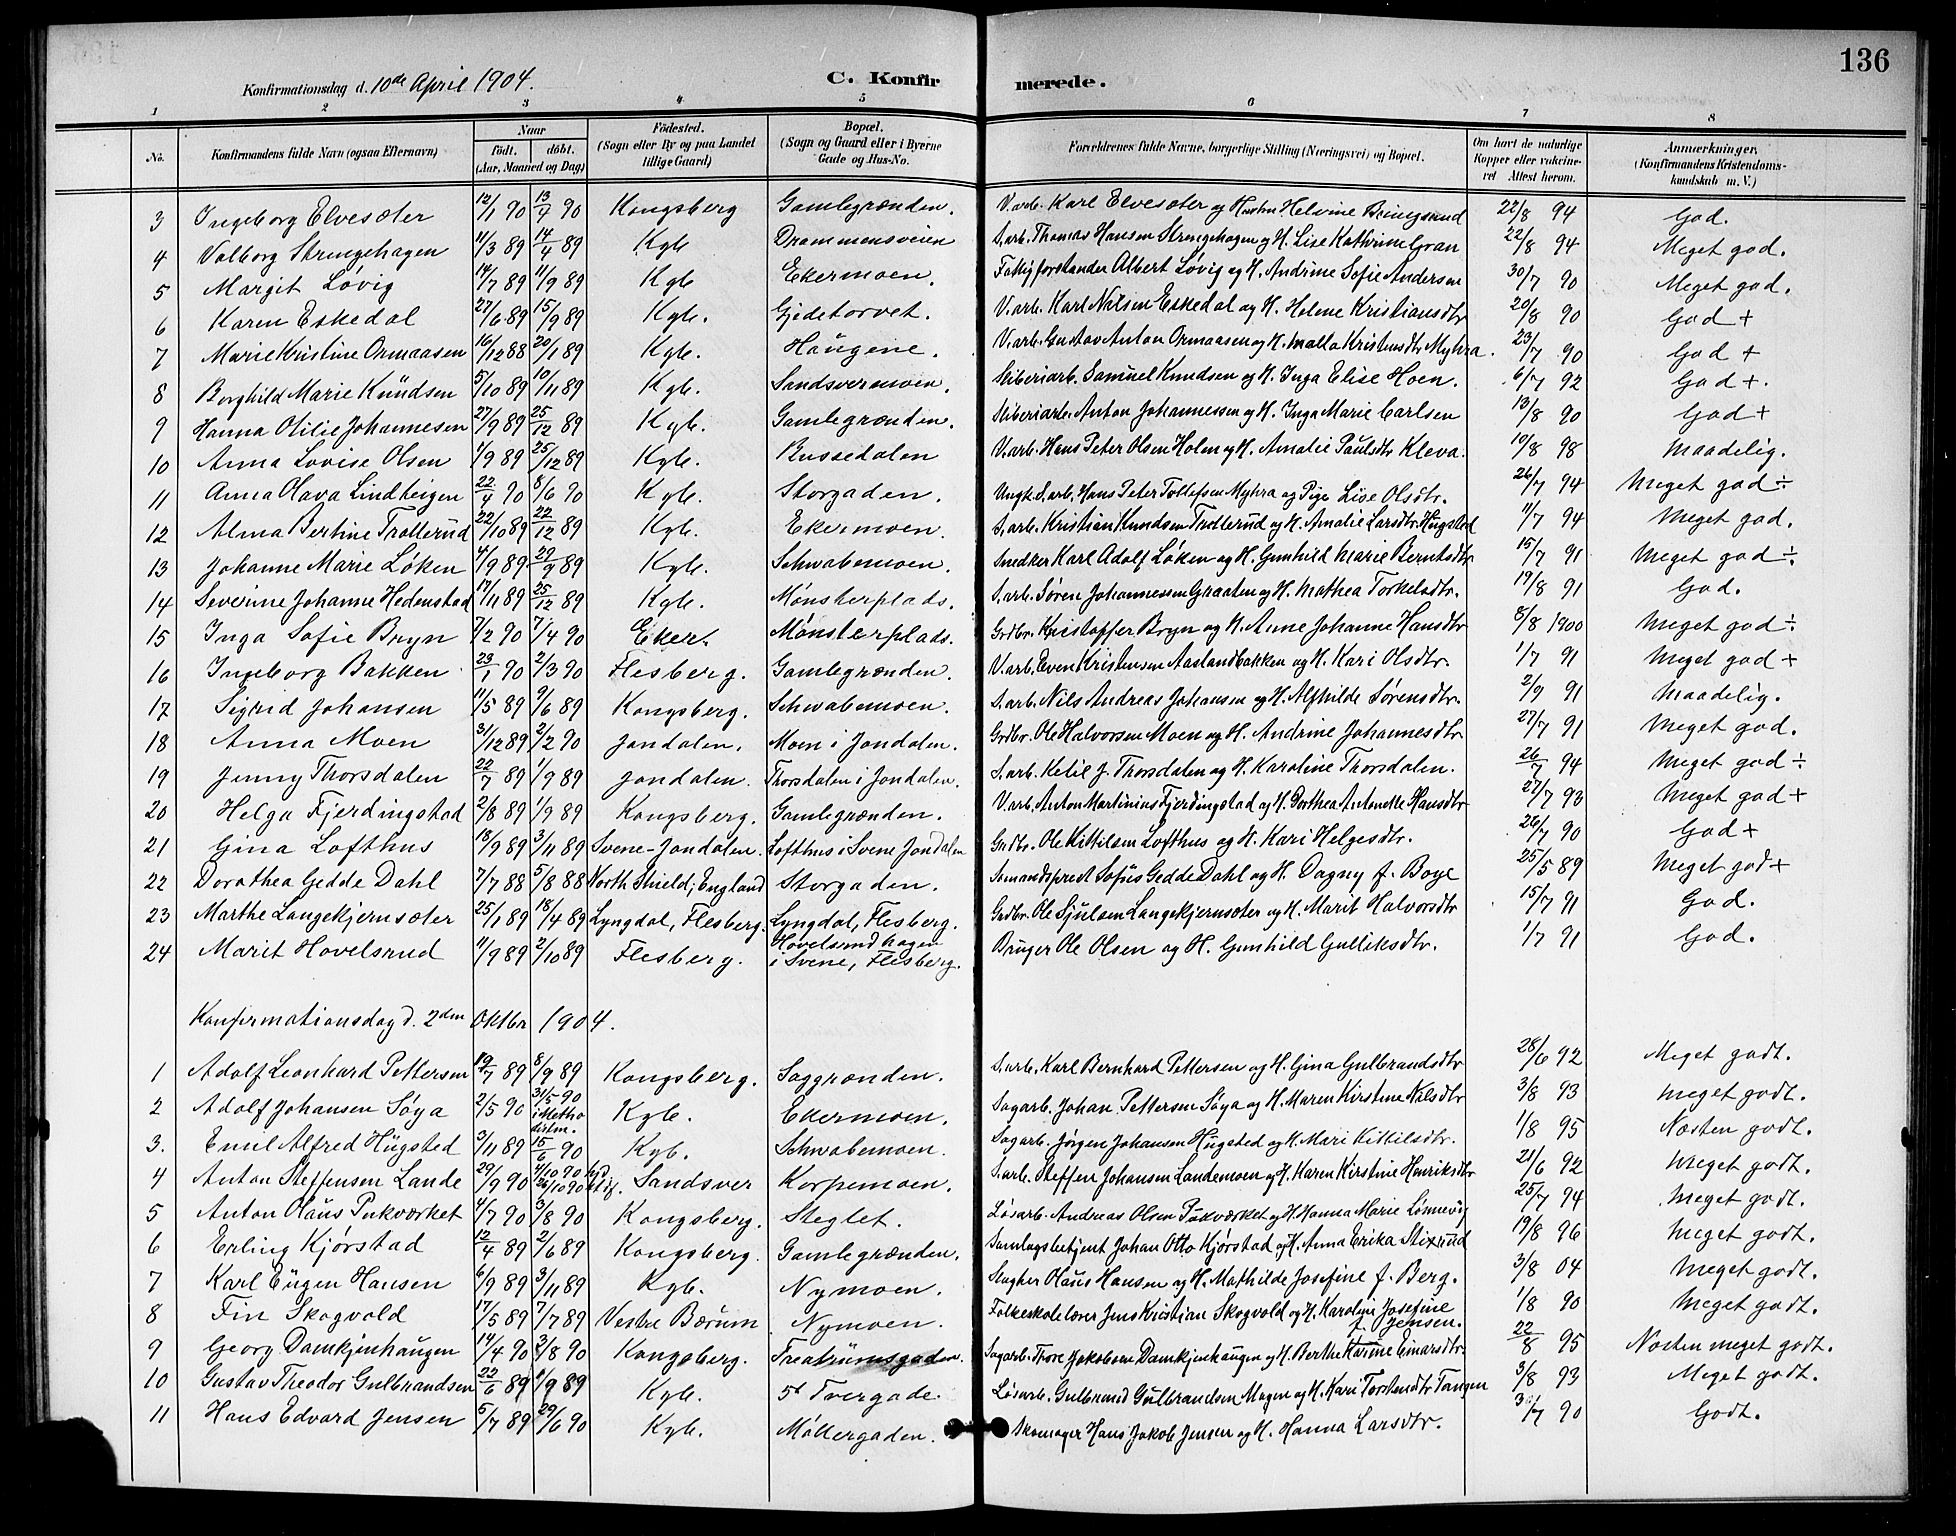 136
Konfirmationsdag d. 10de April 1904.
C. Konfirmerede.
1 2 3 4 5 6 7 8
No. Konfirmandens fulde Navn (ogsaa Efternavn) Naar født. døbt. (Aar, Maaned og Dag) Fødested. (Sogn eller By og paa Landet tillige Gaard) Bopæl. (Sogn og Gaard eller i Byerne Gade og Hus-No. Forældrenes fulde Navne, borgerlige Stilling (Næringsvei) og Bopæl. Om havt de naturlige Kopper eller vakcineret Attest herom. Anmerkninger. (Konfirmandens Kristendomskundskab m. V.)
3 Ingeborg Elvesæter 12/1 90 13/4 90 Kongsberg Gamlegrænden. V.arb. Karl Elvesæter og Hustru Helvine Bringsrud 22/8 94 God.
4 Valborg Strengehagen 11/3 89 14/4 89 Kgb Drammensveien S.arb. Thomas Hansen Strengehagen og H. Lise Kathrine Gran 22/8 94 Meget god.
5 Margit Løvig 14/7 89 11/9 89 Kgb Ekermoen. Fattigforstander Albert Løvig og H. Andrine Sofie Andersen 30/7 90 Meget god.
6 Karen Eskedal 27/6 89 15/9 89 Kgb. Gjedetorvet. V.arb. Karl Nilsen Eskedal og H. Helene Kristiansdtr 20/8 90 God +
7 Marie Kristine Ormaasen 16/12 88 20/1 89 Kgb. Haugene. V.arb. Gustav Anton Ormaasen og H. Malla Kristensdtr Myhra. 23/7 90 God +
8 Borghild Marie Knudsen 5/10 89 10/11 89 Kgb. Sandsvermoen. Sliberiarb. Samuel Knudsen og H. Inga Elise Hoen. 6/7 92 God +.
9 Hanna Otilie Johannesen 27/9 89 25/12 89 Kgb. Gamlegrænden. Sliberiarb. Anton Johannessen og H. Inga Marie Carlsen 13/8 90 God +
10 Anna Lovise Olsen 1/9 89 25/12 89 Kgb. Russedalen V.arb. Hans Peter Olsen Holen og H. Amalie Paulsdtr Kleva. 10/8 98 Maadelig.
11 Anna Olava Lindteigen 22/4 90 8/6 90 Kgb. Storgaden. Ungk. S.arb. Hans Peter Tollefsen Myhra og Pige Lise Olsdtr. 26/7 94 Meget god ÷
12 Alma Bertine Trollerud 22/10 89 22/12 89 Kgb. Ekermoen. S.arb. Kristian Knudsen Trollerud og H. Amalie Larsdtr Hugsted 11/7 94 Meget god.
13 Johanne Marie Løken 4/9 89 29/9 89 Kgb. Schwabemoen. Snedker Karl Adolf Løken og H. Gunhild Marie Berntsdtr 15/7 91 Meget god ÷.
14 Severine Johanne Hedenstad 17/11 89 25/12 89 Kgb. Mønsterplads. S.arb. Søren Johannessen Graaten og H. Mathea Torkelsdtr. 19/8 91 God.
15 Inga Sofie Bryn 7/2 90 7/4 90 Eker. Mønsterplads. Grdbr. Kristoffer Bryn og H. Anne Johanne Hansdtr 8/8 1900 Meget god ÷
16 Ingeborg Bakken 23/1 90 2/3 90 Flesberg. Gamlegrænden. V.arb. Even Kristensen Aaslandbakken og H. Kari Olsdtr. 1/7 91 Meget god +
17 Sigrid Johansen 11/5 89 9/6 89 Kongsberg. Schwabemoen. S.arb. Nils Andreas Johansen og H. Alfhilde Sørensdtr. 2/9 91 Maadelig.
18 Anna Moen 31/12 89 2/2 90 Jondalen. Moen i Jondalen. Grdbr. Ole Halvorsen Moen og H. Andrine Johannesdtr 27/7 91 Meget god.
19 Jenny Thorsdalen 22/7 89 1/9 89 Jondalen. Thorsdalen i Jondalen. S.arb. Ketil J. Thorsdalen og H. Karoline Thorsdalen. 26/7 94 Meget god ÷
20 Helga Fjerdingstad 2/8 89 1/9 89 Kongsberg. Gamlegrænden. V.arb. Anton Martinius Fjerdingstad og H. Dorthea Antonette Hansdtr 27/7 93 Meget god +
21 Gina Lofthus 13/9 89 3/11 89 Svene-Jondalen. Lofthus i Svene Jondalen Grdbr. Ole Kittilsen Lofthus og H. Kari Helgesdtr. 26/7 90 God +
22 Dorothea Gedde Dahl 7/7 88 5/8 88 North Shield, England Storgaden. Sømandsprest Sofus Gedde Dahl og H. Dagny f. Boye 25/5 89 Meget god +
23 Marthe Langekjernsæter 25/1 89 18/4 89 Lyngdal, Flesberg. Lyngdal, Flesberg. Grdbr. Ole Sjulsen Langekjernsæter og H. Marit Halvorsdtr 15/7 91 God.
24 Marit Hovelsrud 11/9 89 2/10 89 Flesberg. Hovelsrudhagen i Svene, Flesberg. Bruger Ole Olsen og H. Gunhild Gulliksdtr. 1/7 91 God.
Konfirmationsdag d. 2den Oktbr 1904.
1 Adolf Leonhard Pettersen 19/7 89 8/9 89 Kongsberg. Saggrænden. S.arb. Karl Bernhard Pettersen og H. Gina Gulbrandsdtr 28/6 92 Meget godt.
2 Adolf Johansen Søya 2/5 90 31/5 90 i Methodistm. Kgb. Ekermoen. Sagarb. Johan Pettersen Søya og H. Maren Kirstine Nilsdtr 3/8 93 Meget godt.
3. Emil Alfred Hugsted 3/11 89 15/6 90 Kgb. Schwabemoen. Sagarb. Jørgen Johansen Hugsted og H. Mari Kittilsdtr. 1/8 95 Næsten godt.
4 Anton Steffensen Lande 29/9 90 4/10 90 hjd 26/10 90 Sandsver Korpemoen. S.arb. Steffen Johansen Landemoen og H. Karen Kirstine Henriksdtr 21/6 92 Meget godt.
5 Anton Olaus Pukværket 4/7 90 3/8 90 Kongsberg. Steglet. Løsarb. Andreas Olsen Pukværket og H. Hanna Marie Lønnevig 25/7 94 Meget godt.
6 Erling Kjørstad 12/4 89 2/6 89 Kongsberg. Gamlegrænden. Samlagsbetjent Johan Otto Kjørstad og H. Anna Erika Stixrud 19/8 96 Meget godt.
7 Karl Eugen Hansen 6/9 89 3/11 89 Kgb. Nymoen. Slagter Olaus Hansen og H. Mathilde Josefine f. Berg. 3/8 04 Meget godt.
8 Fin Skogvold 17/5 89 7/7 89 Vestre Bærum Nymoen. Folkeskolelærer Jens Kristian Skogvold og H. Karoline Josefine f. Jensen. 1/8 90 Meget godt.
9 Georg Damkjenhaugen 14/4 90 3/8 90 Kongsberg. Treatrumsgaden. Sagarb. Thore Jakobsen Damkjenhaugen og H. Berthe Karine Einarsdtr. 22/8 95 Næsten meget godt.
10 Gustav Theodor Gulbrandsen 23/6 89 1/9 89 Kgb. 5t Tvergade. Løsarb. Gulbrand Gulbrandsen Mogen og H. Kari Torstensdtr Tangen 3/8 93 Meget godt.
11 Hans Edvard Jensen 5/7 89 29/6 90 Kgb. Møllergaden. Skomager Hans Jakob Jensen og H. Hanna Larsdtr. 31/7 90 Godt.